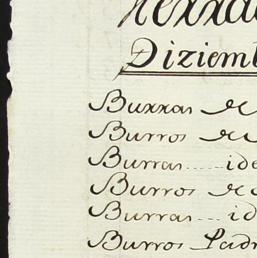 Diziemb
Burras de
Burros de
Burras ..... ide
Burros de
Burras ... id
Burros Padr